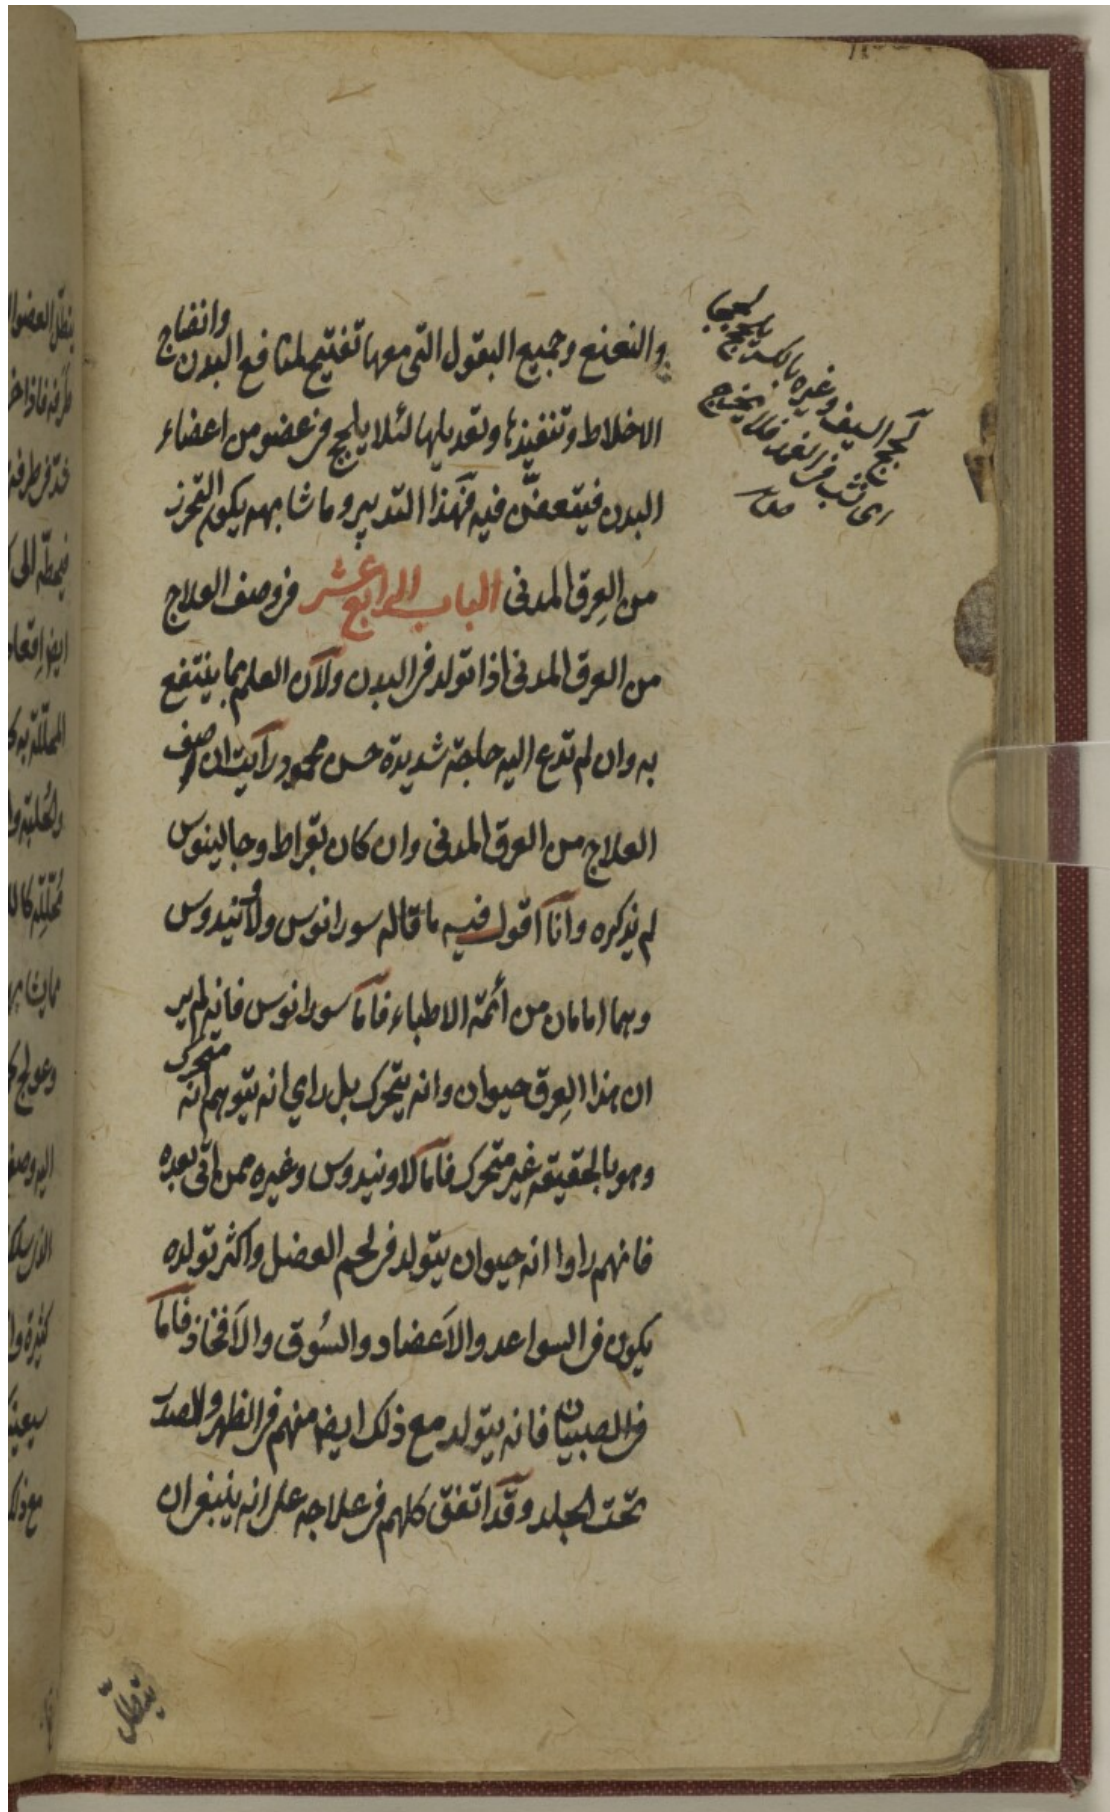 والنعنع وجميع البقول التى معها تفتيح لمنافع البدن وانضاج
الاخلاط وتنفيذها وتعديلها لئلا يلحج فى عضو من اعضاء
البدن فيتعفّن فيه فبهذا التدبير وما شابهه يكون التحرز
من العِرق المدنى الباب الرابع عشر فى وصف العلاج
من العرق المدنى اذا تولد فى البدن ولأن العلم بما ينتفع
به وان لم تدع اليه حاجة شديدة حسن محمود رأيت ان اصف
العلاج من العرق المدنى وان كان بقراط وجالينوس
لم يذكره وأنا أقول فيه ما قاله سورانوس ولاونيدوس
وهما امامان من أئمّة الاطباء فأما سورانوس فانه لم ير
ان هذا العِرق حيوان وانه يتحرك بل راي انه يتوهم انه متحرك
وهو بالحقيقة غير متحرك فاما لاونيدوس وغيره ممن اتى بعده
فانهم راوا انه حيوان يتولد فى لحم العضل واكثر تولده
يكون فى السواعد والأعضاد والسُوق والأفخاذ فأما
فى الصبيان فانه يتولد مع ذلك ايضا منهم فى الظهر والصدر
تحت الجلد وقد اتفق كلهم فى علاجه على انه ينبغى ان
لحج السيف وغيره بالكسر يلحج لحجا
اى نشب فى الغمد فلا يخرج
صحاح